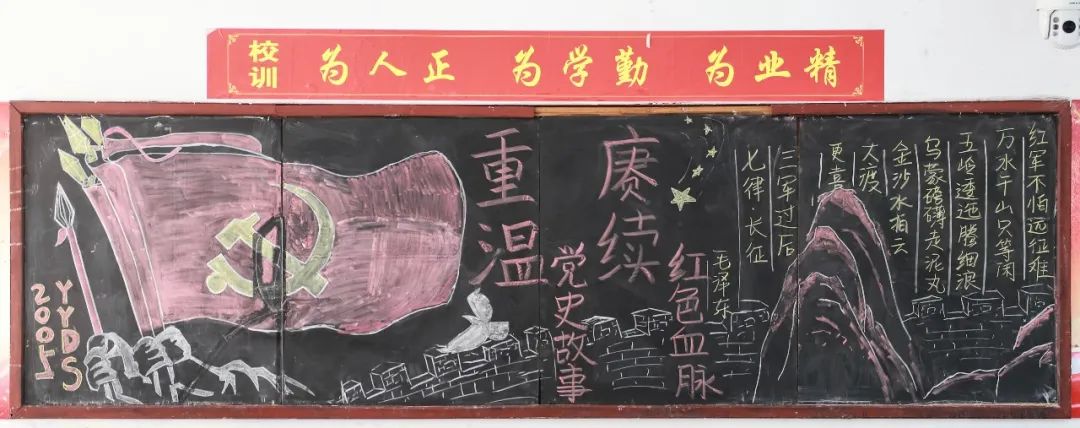 校训 为人正 为学勤 为业精
YYDS
2005
重温
党史故事
赓续
红色血脉
七律 长征
毛泽东
红军不怕远征难
万水千山只等闲
五岭逶迤腾细浪
乌蒙磅礴走泥丸
金沙水拍云
大渡
更喜
三军过后